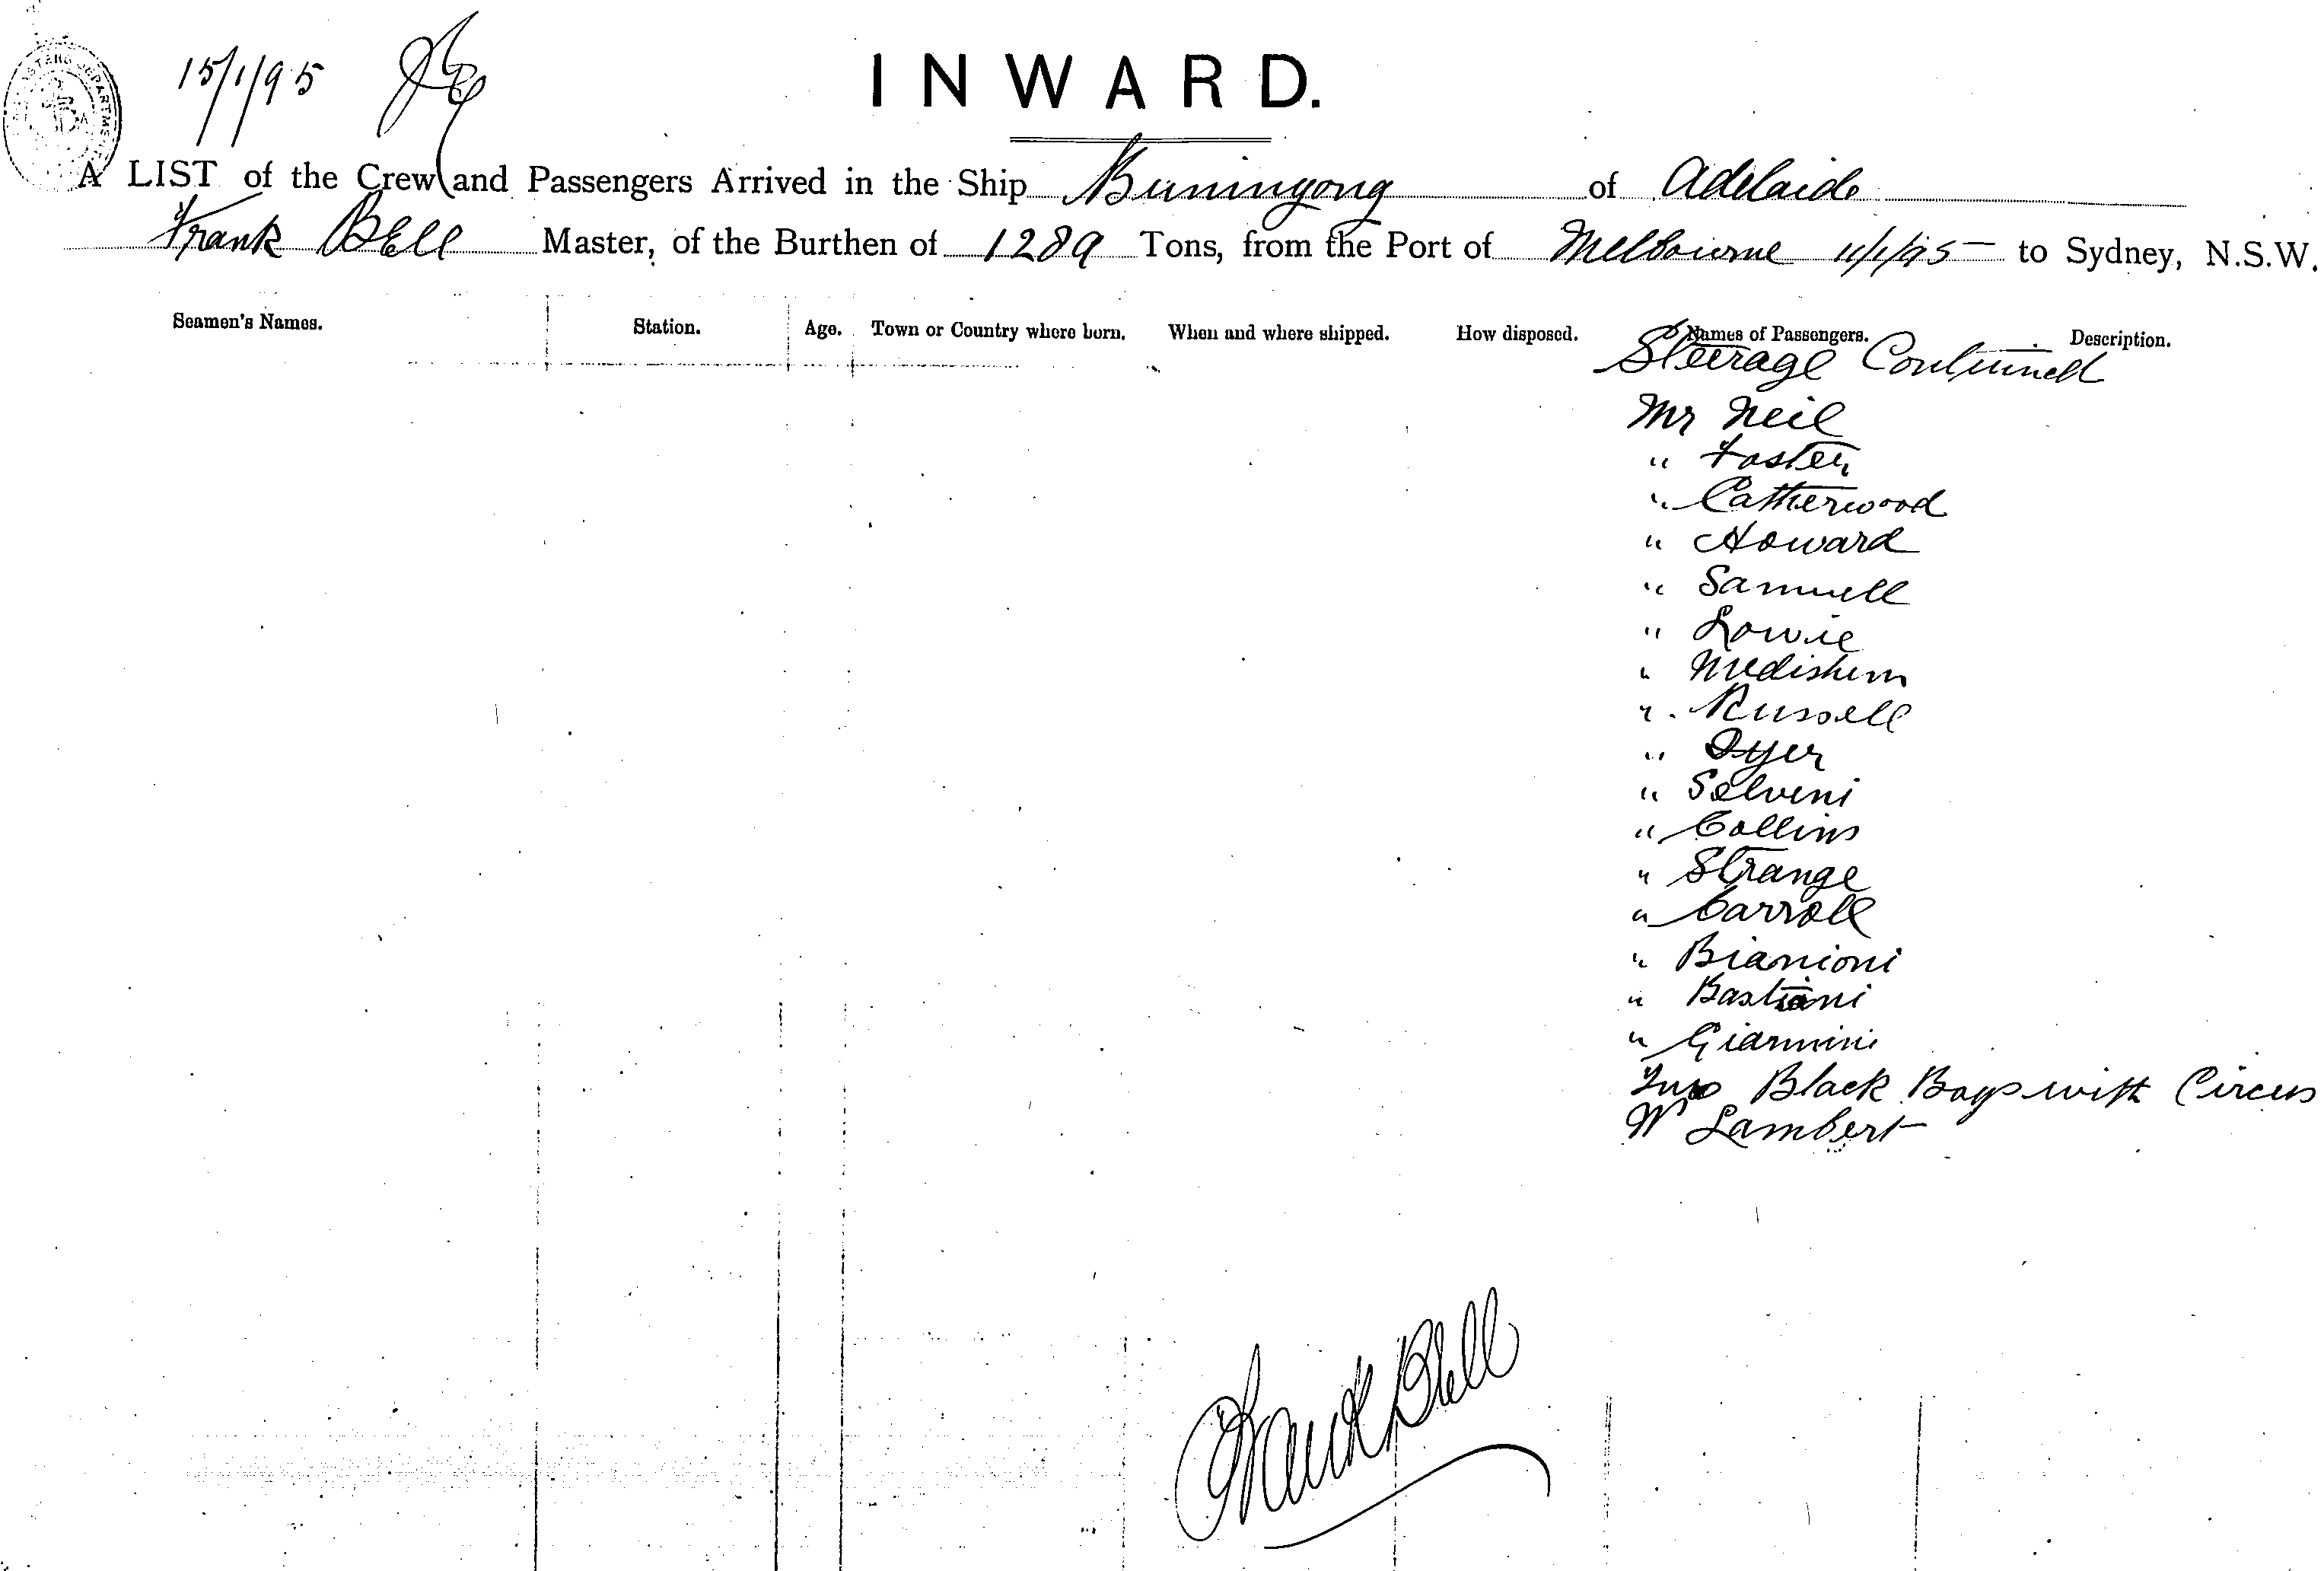 15/1/95
INWARD.
A LIST of the Crew and Passengers Arrived in the Ship Buninyong of Adelaide
Frank Bell Master, of the Burthen of 1289 Tons, from the Port of Melbourne 11/1/95 to Sydney, N.S.W.
Seamen's Names. Station. Age. Town or Country where born. When and where shipped. How disposed. Names of Passengers. Description.
Steerage Continued
Mr Neil
" Foster
" Catherwood
" Howard
" Samuell
" Lowie
"
" Russell
" Dyer
" Selveni
" Collins
" Strange
" Carroll
" Bianioni
" Bastiani
" Giannini
Two Black Boys with Circus
W Lambert
Frank Bell